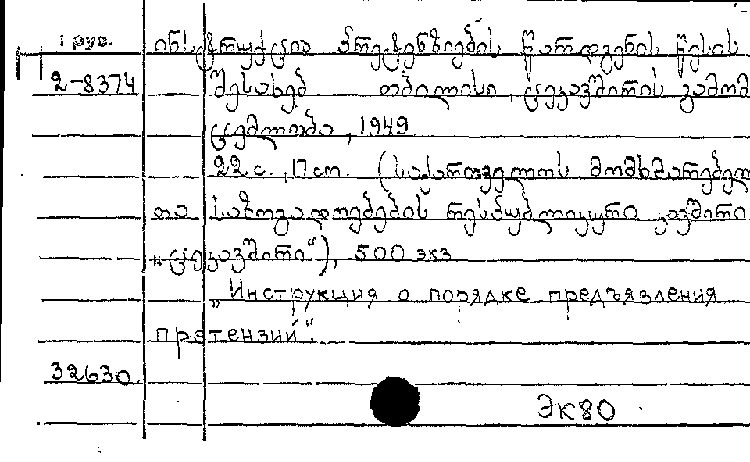 1 руб. ინსტრუქცია პრეტენზიების წარდგენის წესის
2-8374 შესახებ თბილისი, ცეკავშირის გამომ
ცემლობა, 1949
22 с., 17 см. (საქართველოს მომხმარებელ
თა საზოგადოებების რესპუბლიკური კავშირი
„ცეკავშირი“), 500 экз
„Инструкция о порядке предъявления
претензий“.
32630
ЭК80